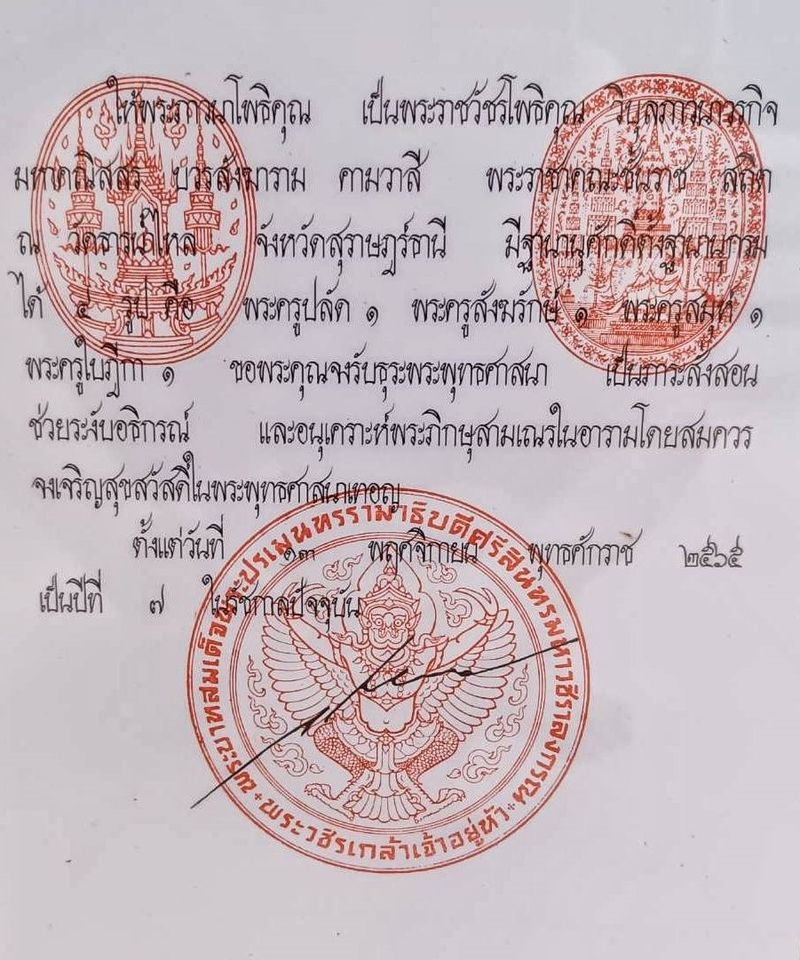 ให้พระภาวนาโพธิคุณ เป็นพระราชวัชรโพธิคุณ วิบุลภาวนาวรกิจ
มหาคณิสสร บวรสังฆาราม คามวาสี พระราชาคณะชั้นราช สถิต
ณ วัดธารน้ำไหล จังหวัดสุราษฎร์ธานี มีฐานานุศักดิ์ตั้งฐานานุกรม
ได้ ๔ รูป คือ พระครูปลัด ๑ พระครูสังฆรักษ์ ๑ พระครูสมุห์ ๑
พระครูใบฎีกา ๑ ขอพระคุณจงรับธุระพระพุทธศาสนา เป็นภาระสั่งสอน
ช่วยระงับอธิกรณ์ และอนุเคราะห์พระภิกษุสามเณรในอารามโดยสมควร
จงเจริญสุขสวัสดิ์ในพระพุทธศาสนาเทอญ
ตั้งแต่วันที่ ๑๓ พฤศจิกายน พุทธศักราช ๒๕๖๕
เป็นปีที่ ๗ ในรัชกาลปัจจุบัน
พระบาทสมเด็จพระปรเมนทรรามาธิบดีศรีสินทรมหาวชิราลงกรณ
พระวชิรเกล้าเจ้าอยู่หัว